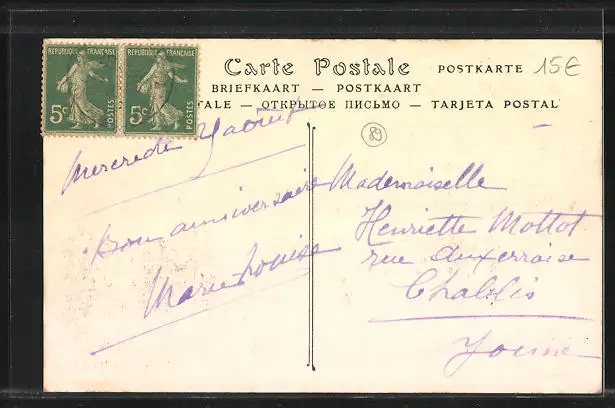 REPUBLIQUE FRANÇAISE REPUBLIQUE FRANÇAISE
5c POSTES 5c POSTES
Carte Postale POSTKARTE 15€
BRIEFKAART — POSTKAART
TALE — ОТКРЫТОЕ ПИСЬМО — TARJETA POSTAL
89
Mercredi 9 août
Bon anniversaire
Marie Louise
Mademoiselle
Henriette Mottot
rue Auxerroise
Chablis
Yonne